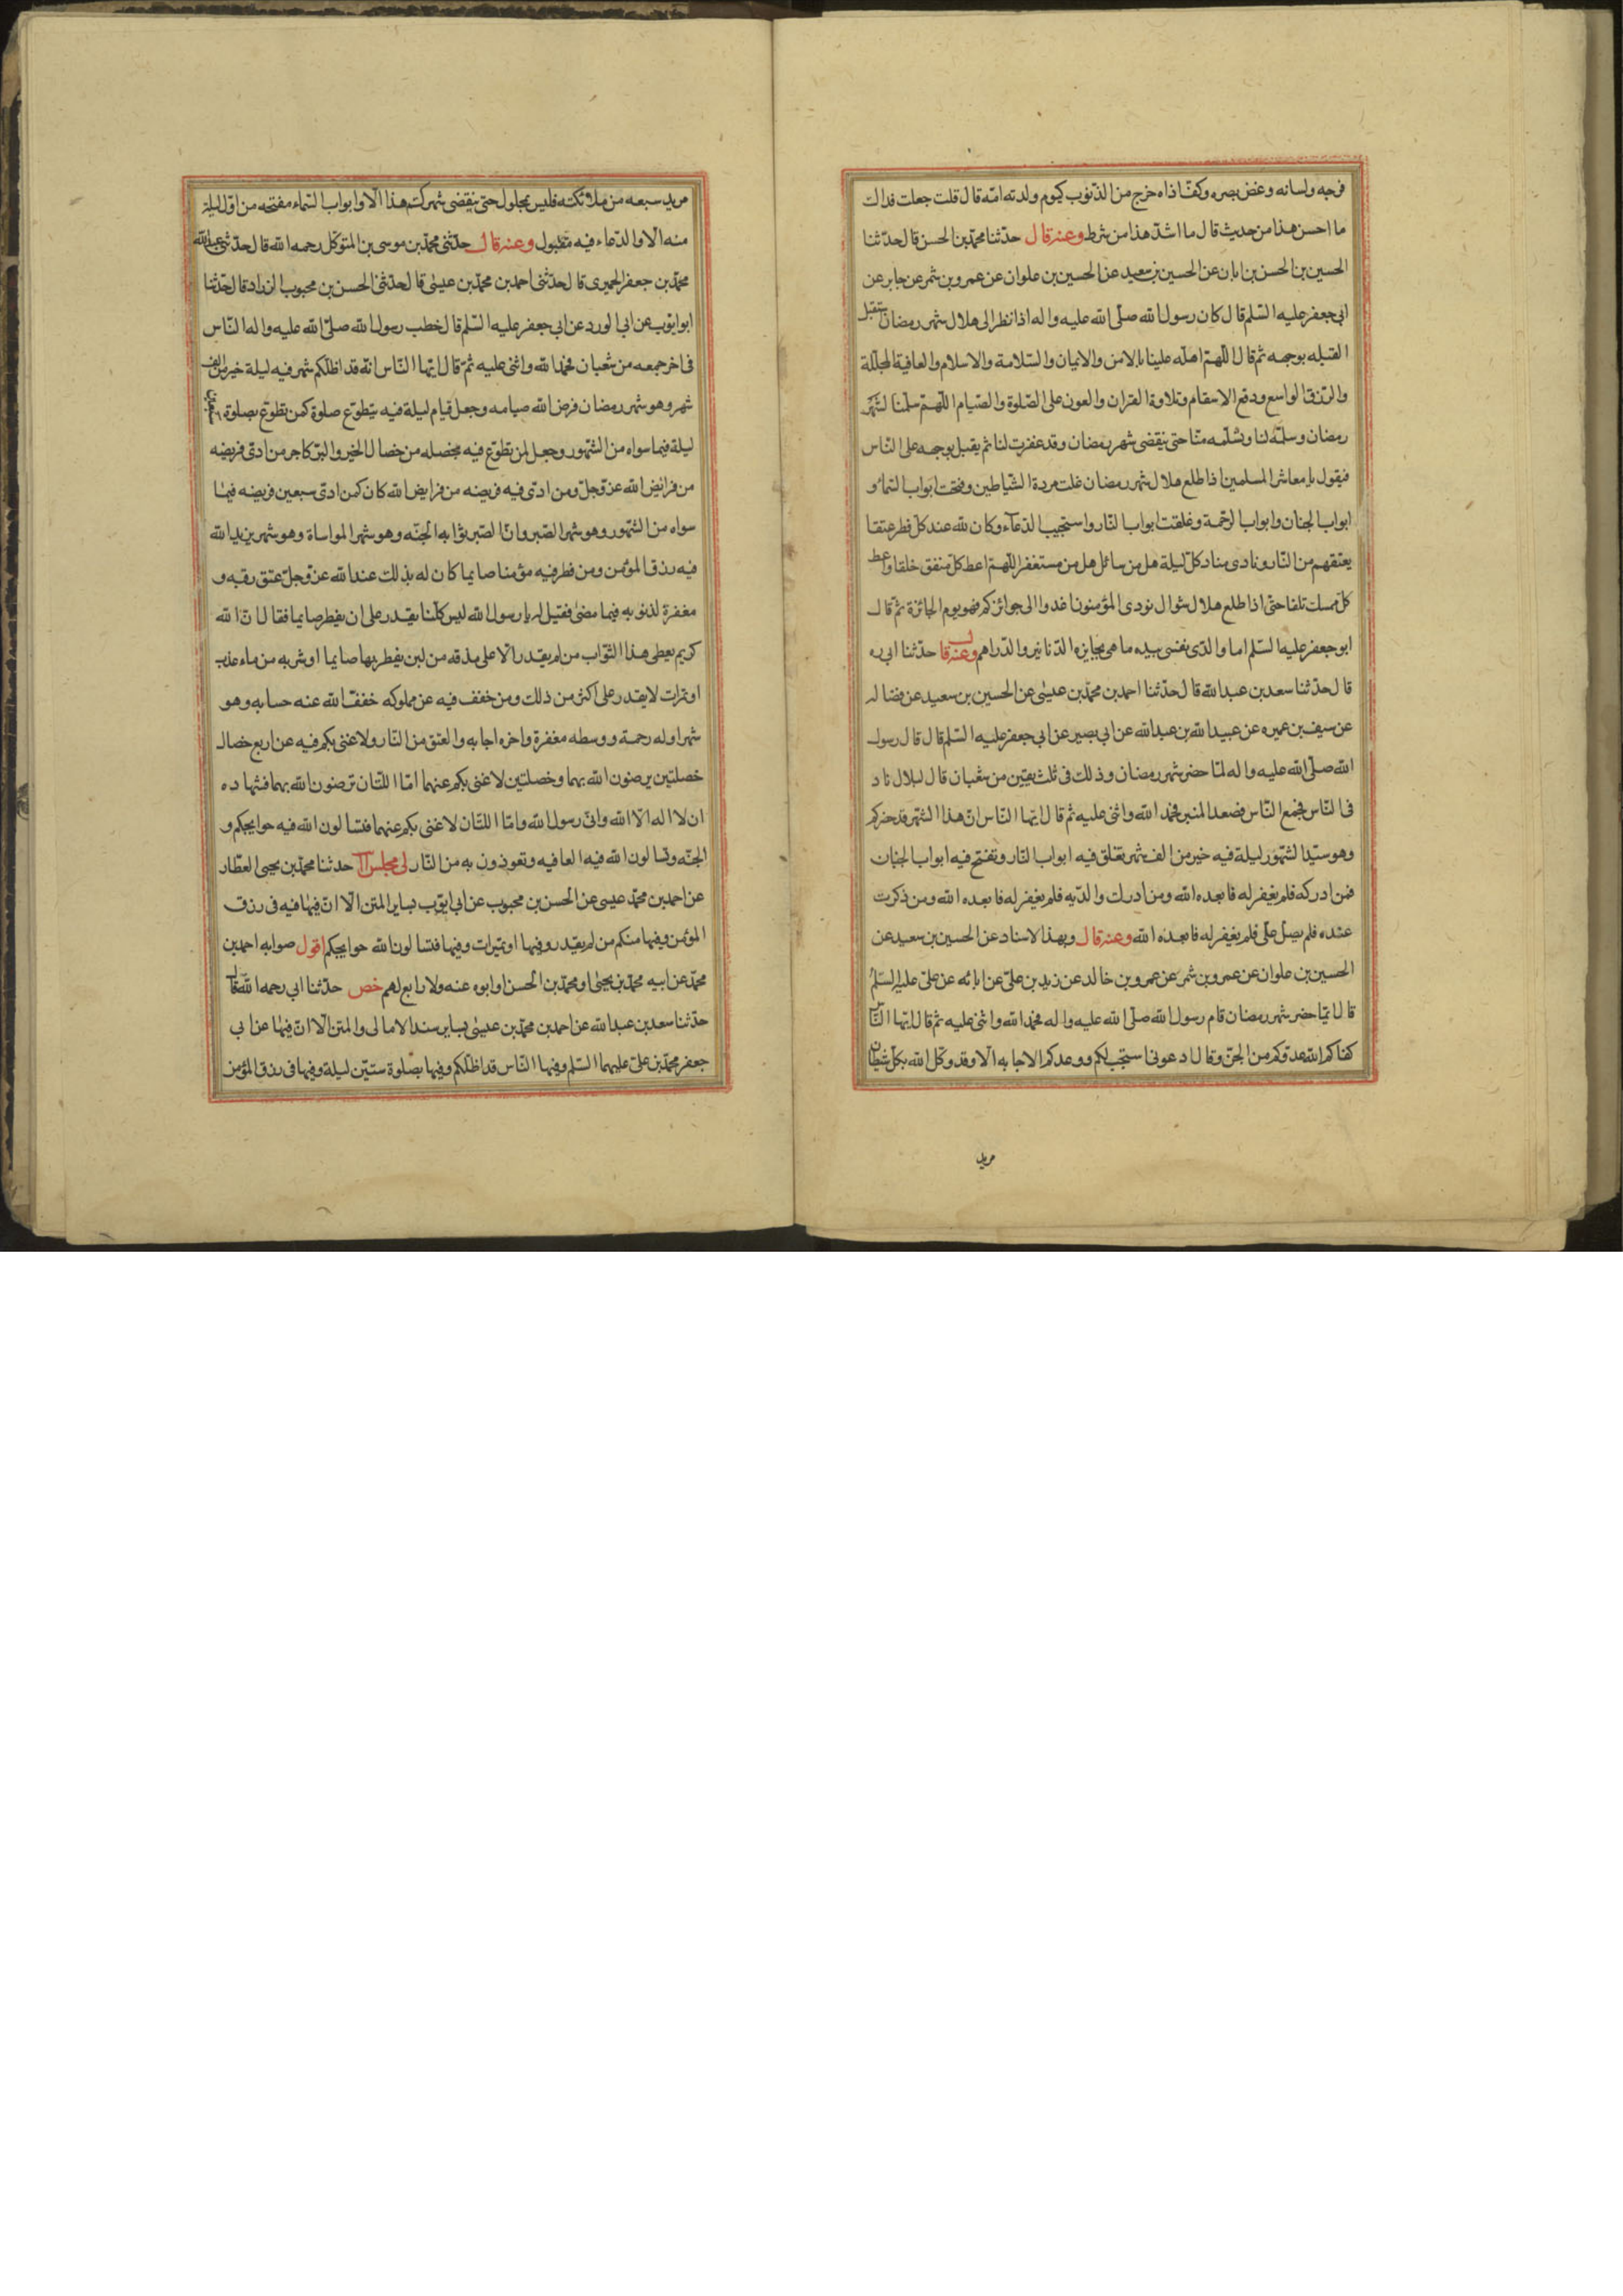 فرجه ولسانه وغض بصره وكف اذاه خرج من الذنوب كيوم ولدته امّه قال قلت جعلت فداك
ما احسن هذا من حديث قال ما اشدّ هذا من شرط وعنه قال حدّثنا محمّد بن الحسن قال حدّثنا
الحسين بن الحسن بن ابان عن الحسين بن سعيد عن الحسين بن علوان عن عمرو بن شمر عن جابر عن
ابي جعفر عليه السّلم قال كان رسول الله صلّى الله عليه واله اذا نظر الى هلال شهر رمضان استقبل
القبله بوجهه ثم قال اللّهمّ اهلّه علينا بالامن والايمان والسّلامة والاسلام والعافية المجلّلة
والرّزق الواسع ودفع الاسقام وتلاوة القران والعون على الصّلوة والصّيام اللّهمّ سلّمنا لشهر
رمضان وسلّمه لنا وتسلّمه منّا حتى ينقضى شهر رمضان وقد غفرت لنا ثم يقبل بوجهه على النّاس
فيقول يا معاشر المسلمين اذا طلع هلال شهر رمضان غلت مردة الشّياطين وفتحت ابواب السّماء و
ابواب الجنان وابواب الرّحمة وغلقت ابواب النّار واستجيب الدّعاء وكان لله عند كلّ فطر عتقا
يعتقهم من النّار ونادى مناد كلّ ليلة هل من سائل هل من مستغفر اللّهمّ اعط كلّ منفق خلفا واعط
كلّ ممسك تلفا حتى اذا طلع هلال شوال نودى المؤمنون ان اغدوا الى جوائزكم فهو يوم الجائزة ثمّ قال
ابو جعفر عليه السّلم اما والذى نفسى بيده ما هى بجايزه الدّنانير والدّراهم وعنه قال حدّثنا ابى ره
قال حدّثنا سعد بن عبد الله قال حدّثنا احمد بن محمّد بن عيسى عن الحسين بن سعيد عن فضاله
عن سيف بن عميره عن عبيد الله بن عبد الله عن ابى بصير عن ابى جعفر عليه السّلم قال قال رسول
الله صلّى الله عليه واله لمّا حضر شهر رمضان وذلك فى ثلث بقين من شعبان قال لبلال ناد
فى النّاس فجمع النّاس فصعد المنبر فحمد الله واثنى عليه ثم قال ايّها النّاس انّ هذا الشّهر قد حضركم
وهو سيّد الشّهور ليلة فيه خير من الف شهر تغلق فيه ابواب النّار وتفتح فيه ابواب الجنان
فمن ادركه فلم يغفر له فابعده الله ومن ادرك والديه فلم يغفر له فابعده الله ومن ذكرت
عنده فلم يصلّ علىّ فلم يغفر له فابعده الله وعنه قال وبهذا الاسناد عن الحسين بن سعيد عن
الحسين بن علوان عن عمرو بن شمر عن عمرو بن خالد عن زيد بن علىّ عن ابائه عن علىّ عليه السّلم
قال لمّا حضر شهر رمضان قام رسول الله صلّى الله عليه واله فحمد الله واثنى عليه ثم قال ايّها النّاس
كفاكم الله عدوّكم من الجنّ وقال ادعونى استجب لكم ووعدكم الاجابه الا وقد وكّل الله بكلّ شيطان
مريد
مريد سبعه من ملائكته فليس بمحلول حتى ينقضى شهركم هذا الا وابواب السّماء مفتحه من اوّل ليلة
منه الا والدّعاء فيه مقبول وعنه قال حدّثنى محمّد بن موسى بن المتوكّل رحمه الله قال حدّثنى عبد الله
محمّد بن جعفر الحميرى قال حدّثنى احمد بن محمّد بن عيسى قال حدّثنى الحسن بن محبوب الزراد قال حدّثنا
ابو ايّوب عن ابى الورد عن ابى جعفر عليه السّلم قال خطب رسول الله صلّى الله عليه واله النّاس
فى اخر جمعه من شعبان فحمد الله واثنى عليه ثمّ قال ايّها النّاس انّه قد اظلّكم شهر فيه ليلة خير من الف
شهر وهو شهر رمضان فرض الله صيامه وجعل قيام ليلة فيه بتطوّع صلوة كمن تطوّع بصلوة سبعين
ليلة فيما سواه من الشّهور وجعل لمن تطوّع فيه بخصله من خصال الخير والبرّ كاجر من ادّى فريضه
من فرائض الله عزّ وجلّ ومن ادّى فيه فريضه من فرايض الله كان كمن ادّى سبعين فريضه فيما
سواه من الشّهور وهو شهر الصّبر وانّ الصّبر ثوابه الجنّه وهو شهر المواساة وهو شهر يزيد الله
فيه رزق المؤمن ومن فطر فيه مؤمنا صايما كان له بذلك عند الله عزّ وجلّ عتق رقبه و
مغفرة لذنوبه فيما مضى فقيل له يا رسول الله ليس كلّنا يقدر على ان يفطر صايما فقال انّ الله
كريم يعطى هذا الثّواب من لم يقدر الّا على مذقه من لبن يفطر بها صايما او شربه من ماء عذب
او تمرات لا يقدر على اكثر من ذلك ومن خفف فيه عن مملوكه خففّ الله عنه حسابه وهو
شهر اوله رحمة ووسطه مغفرة واخره اجابه والعتق من النّار ولا غنى بكم فيه عن اربع خصال
خصلتين ترضون الله بهما وخصلتين لا غنى بكم عنهما امّا اللتان ترضون الله بهما فشهاده
ان لا اله الّا الله وانّى رسول الله وامّا اللتان لا غنى بكم عنهما فتسالون الله فيه حوايجكم و
الجنّه وتسالون الله فيه العافيه وتعوذون به من النّار لى مجلس حدثنا محمّد بن يحيى العطّار
عن احمد بن محمّد عيسى عن الحسن بن محبوب عن ابى ايّوب بساير المتن الّا انّ فيها فيه فى رزق
المؤمن وفيها منكم من لم يقدر وفيها او بتمرات وفيها فتسالون الله حوايجكم اقول صوابه احمد بن
محمّد عن ابيه محمّد بن يحيى او محمّد بن الحسن او ابوه عنه ولا رابع لهم خص حدّثنا ابى رحمه الله قال
حدّثنا سعد بن عبد الله عن احمد بن محمّد بن عيسى بساير سند الامالى والمتن الّا انّ فيها عن ابى
جعفر محمّد بن علىّ عليهما السّلم وفيها النّاس قد اظلّكم وفيها بصلوة ستّين ليلة وفيها فى رزق المؤمن